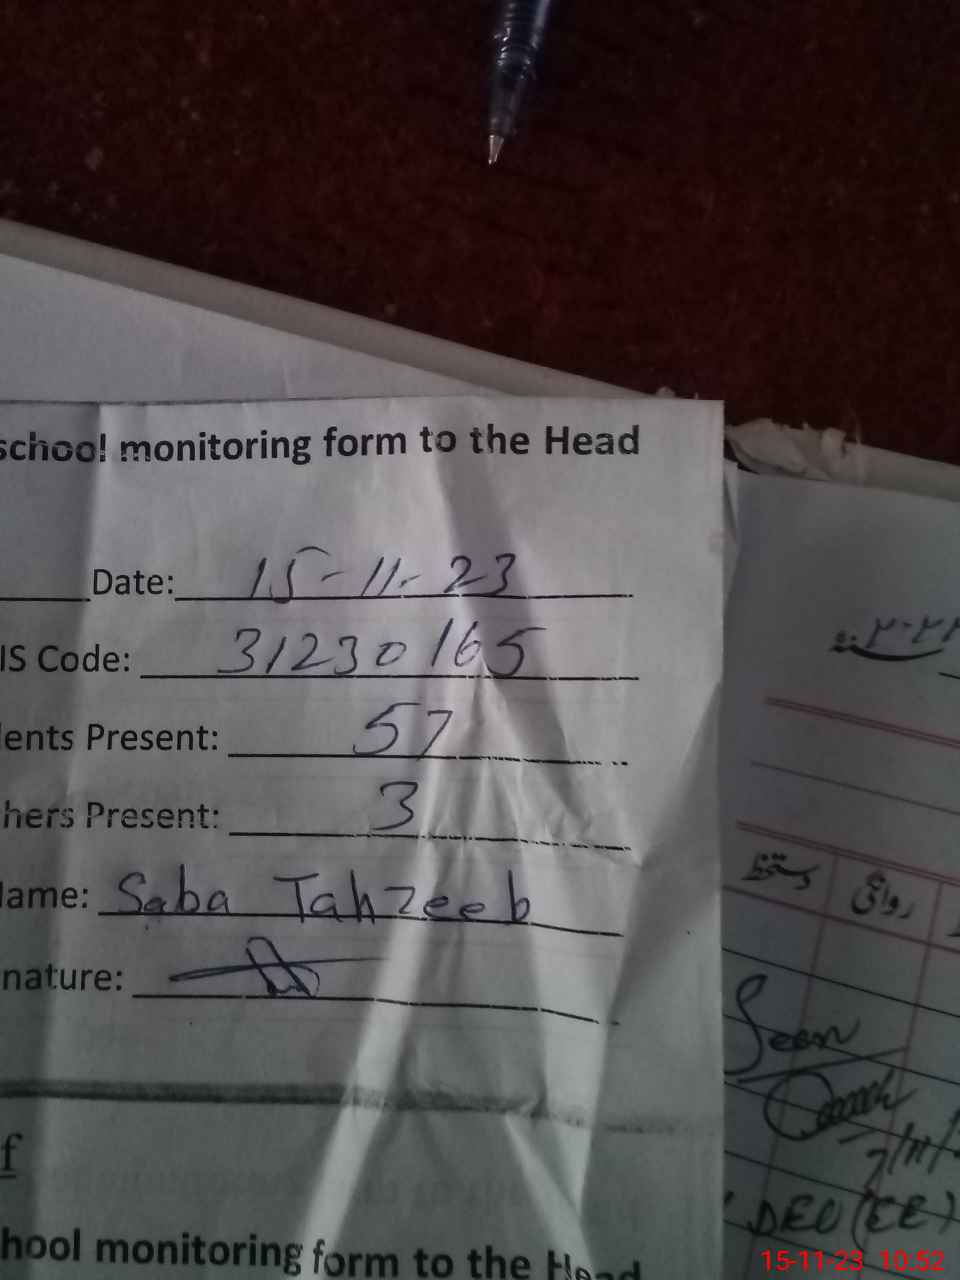 school monitoring form to the Head
Date: 15-11-23
IS Code: 31230165
ents Present: 57
hers Present: 3
lame: Saba Tahzeeb
nature:
f
hool monitoring form to the Head
دستخط
روانگی
Seen
7/11/
DEO (EE)
15-11-23 10:52